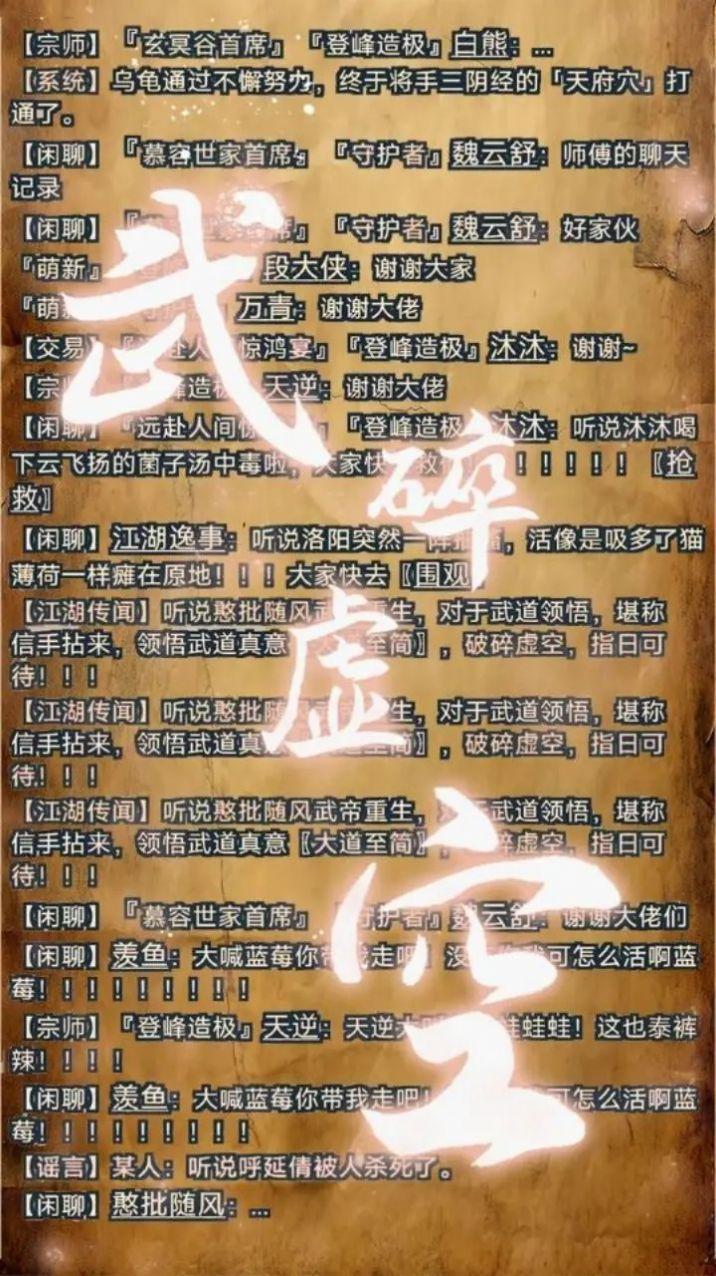 【宗师】『玄冥谷首席』『登峰造极』白熊：...
【系统】乌龟通过不懈努力，终于将手三阴经的「天府穴」打
通了。
【闲聊】『慕容世家首席』『守护者』魏云舒：师傅的聊天
记录
【闲聊】 世家首席』『守护者』魏云舒：好家伙
『萌新』 段大侠：谢谢大家
『萌 万青：谢谢大佬
【交易】 赴人 惊鸿宴』『登峰造极』沐沐：谢谢~
【宗 峰造极』天逆：谢谢大佬
【闲 『远赴人间惊 『登峰造极』沐沐：听说沐沐喝
下云飞扬的菌子汤中毒啦，大家快 救 ！！！！！！〖抢
救〗
【闲聊】江湖逸事：听说洛阳突然一阵 ，活像是吸多了猫
薄荷一样瘫在原地！！！大家快去〖围观
【江湖传闻】听说憨批随风武 重生，对于武道领悟，堪称
信手拈来，领悟武道真意 道至简〗，破碎虚空，指日可
待！！！
【江湖传闻】听说憨批随 生，对于武道领悟，堪称
信手拈来，领悟武道真意 道至简〗，破碎虚空，指日可
待！！！
【江湖传闻】听说憨批随风武帝重生，对于武道领悟，堪称
信手拈来，领悟武道真意〖大道至简〗， 碎虚空，指日可
待！！！
【闲聊】『慕容世家首席』 守护者』魏云舒：谢谢大佬们
【闲聊】羡鱼：大喊蓝莓你带我走吧！没 可怎么活啊蓝
莓！！！！！！！！！
【宗师】『登峰造极』天逆：天逆大 蛙蛙！这也泰裤
辣！！！！
【闲聊】羡鱼：大喊蓝莓你带我走吧！ 可怎么活啊蓝
莓！！！！！！！！！
【谣言】某人：听说呼延倩被人杀死了。
【闲聊】憨批随风：...
武
碎
虚
空